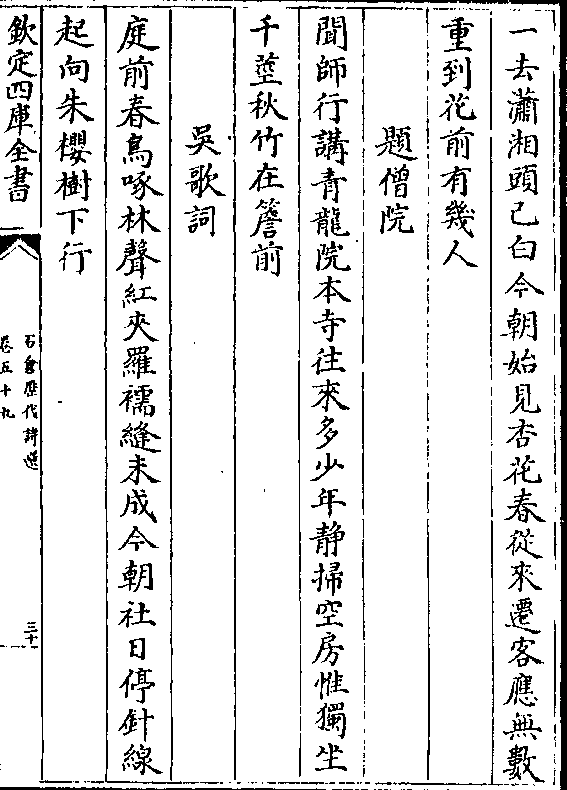 一去瀟湘頭已白今朝始見杏花春從來遷客應無數
重到花前有幾人
題僧院
聞師行講青龍院本寺往來多少年静掃空房惟獨坐
千莖秋竹在簷前
吳歌詞
庭前春鳥啄林聲紅夾羅襦縫未成今朝社日停針線
起向朱櫻樹下行
欽定四庫全書
石倉歴代詩選
卷五十九
三十